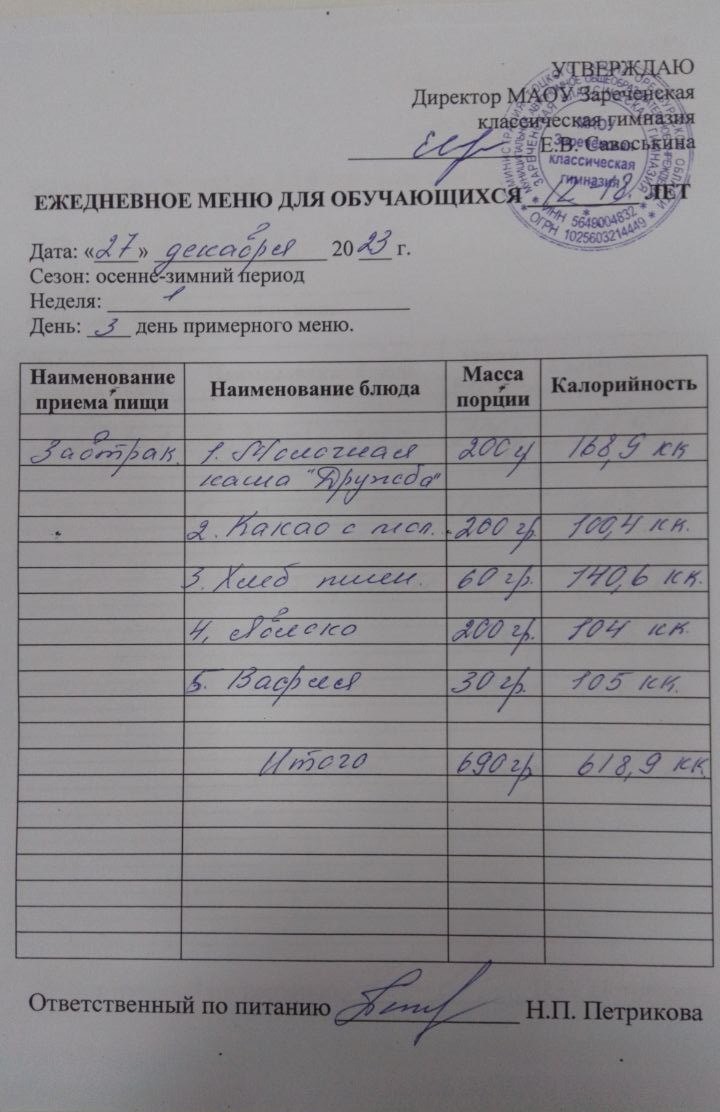 УТВЕРЖДАЮ
Директор МАОУ Зареченская
классическая гимназия
Е.В. Савоськина
МАОУ
Зареченская
классическая
гимназия
ИНН 5649004832
ОГРН 1025603214449
ЕЖЕДНЕВНОЕ МЕНЮ ДЛЯ ОБУЧАЮЩИХСЯ 12-18. ЛЕТ
Дата: «27» декабря 2023 г.
Сезон: осенне-зимний период
Неделя: 1
День: 3 день примерного меню.
Наименование приема пищи Наименование блюда Масса порции Калорийность
Завтрак. 1. Молочная 200г 168,9 кк
каша "Дружба"
2. Какао с мол. 200 гр. 100,4 кк.
3. Хлеб пшен. 60 гр. 140,6 кк.
4, Яблоко 200 гр. 104 кк.
5. Вафля 30 гр. 105 кк.
Итого 690 гр 618,9 кк
Ответственный по питанию Н.П. Петрикова